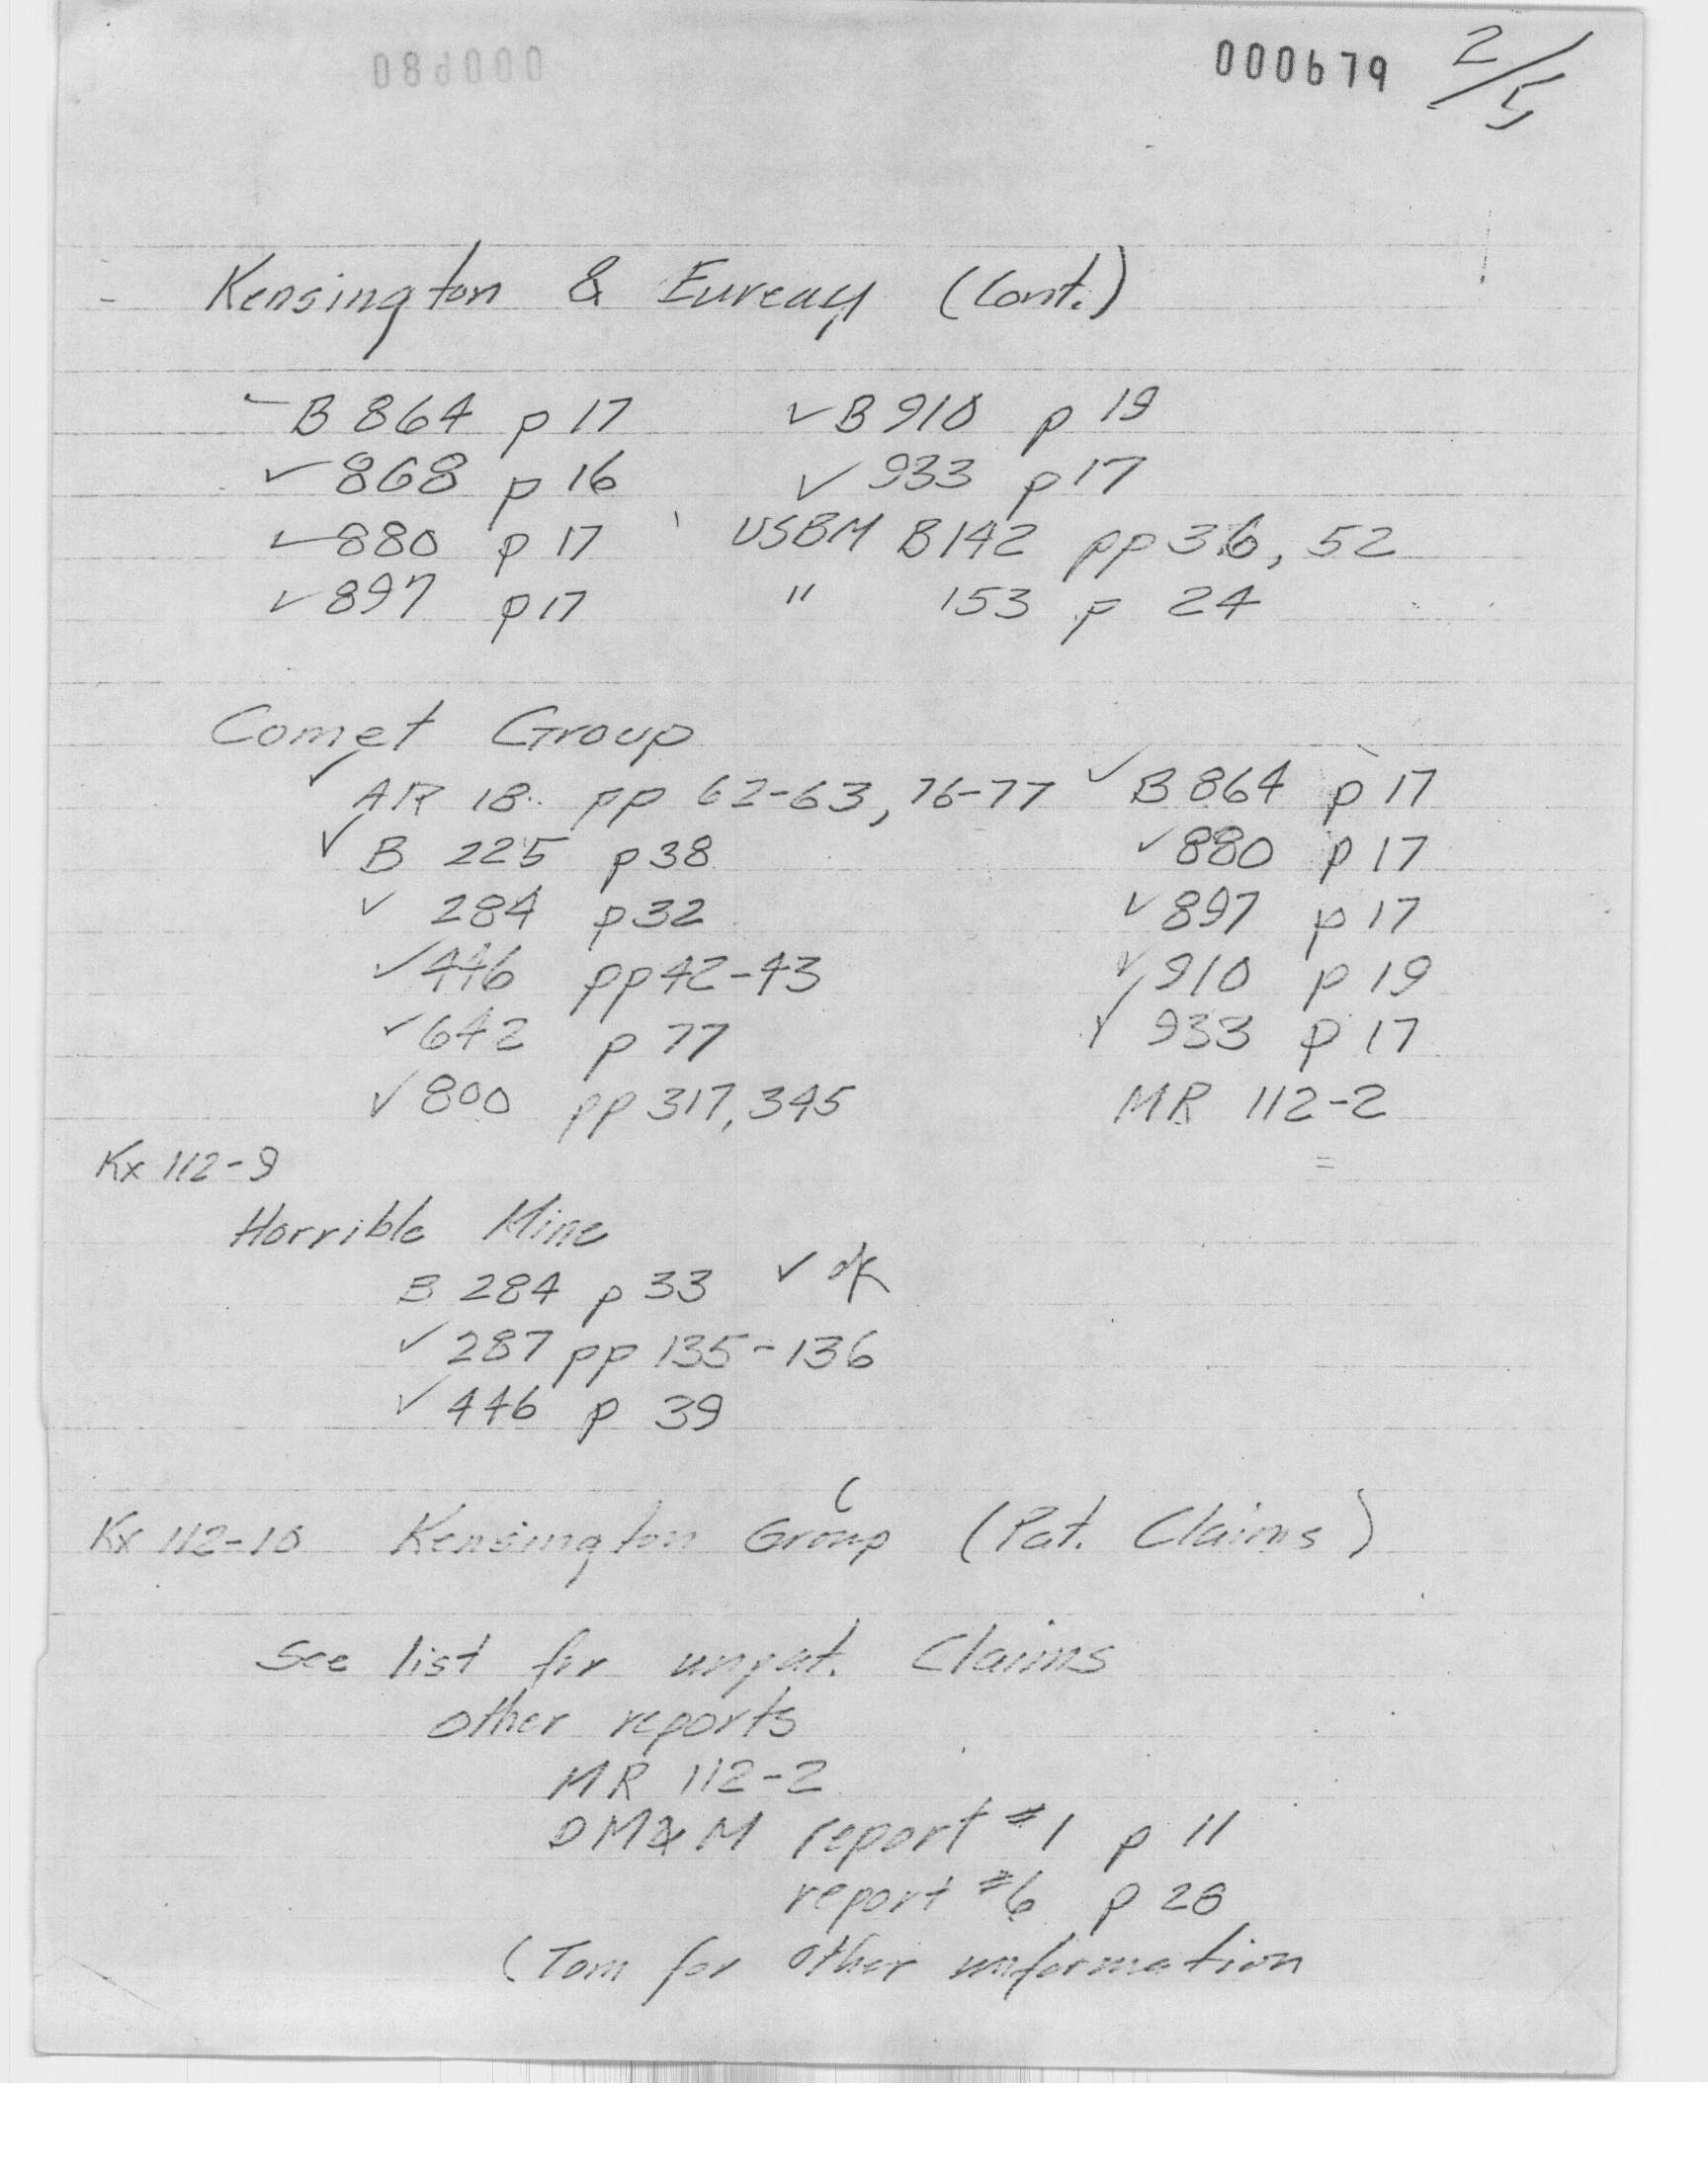 000679 2/5
Kensington & Eureay (Cont.)
✓ B 864 p 17 ✓ B 910 p 19
✓ 868 p 16 ✓ 933 p 17
✓ 880 p 17 USBM B142 pp 36, 52
✓ 897 p 17 " 153 p 24
Comet Group
✓ AR 18 pp 62-63, 76-77 ✓ B 864 p 17
✓ B 225 p 38 ✓ 880 p 17
✓ 284 p 32 ✓ 897 p 17
✓ 446 pp 42-43 ✓ 910 p 19
✓ 642 p 77 ✓ 933 p 17
✓ 800 pp 317, 345 MR 112-2
Kx 112-9
Horrible Mine
B 284 p 33 ✓ ok
✓ 287 pp 135-136
✓ 446 p 39
Kx 112-10 Kensington Group (Pat. Claims)
See list for unpat. Claims
other reports
MR 112-2
DM&M report #1 p 11
report #6 p 28
(Tom for other information